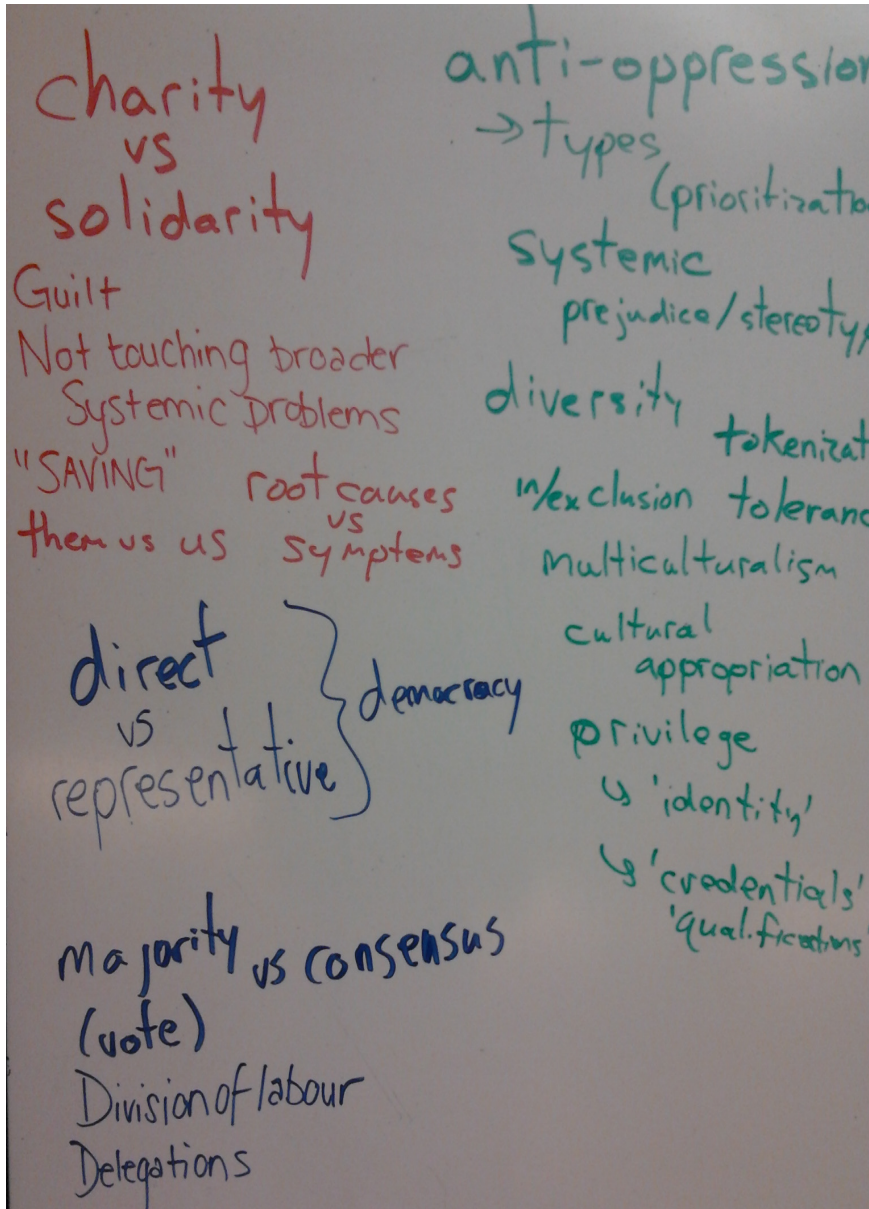 charity
vs
solidarity
Guilt
Not touching broader
Systemic problems
"SAVING"
them vs us
root causes
vs
symptems
direct
vs
representative
democracy
majority vs consensus
(vote)
Division of labour
Delegations
anti-oppression
→ types
(prioritizatio
systemic
prejudice/stereotyp
diversity
tokenizat
in/exclusion
toleranc
multiculturalism
cultural
appropriation
privilege
↳ 'identity'
↳ 'credentials'
'qualifications'